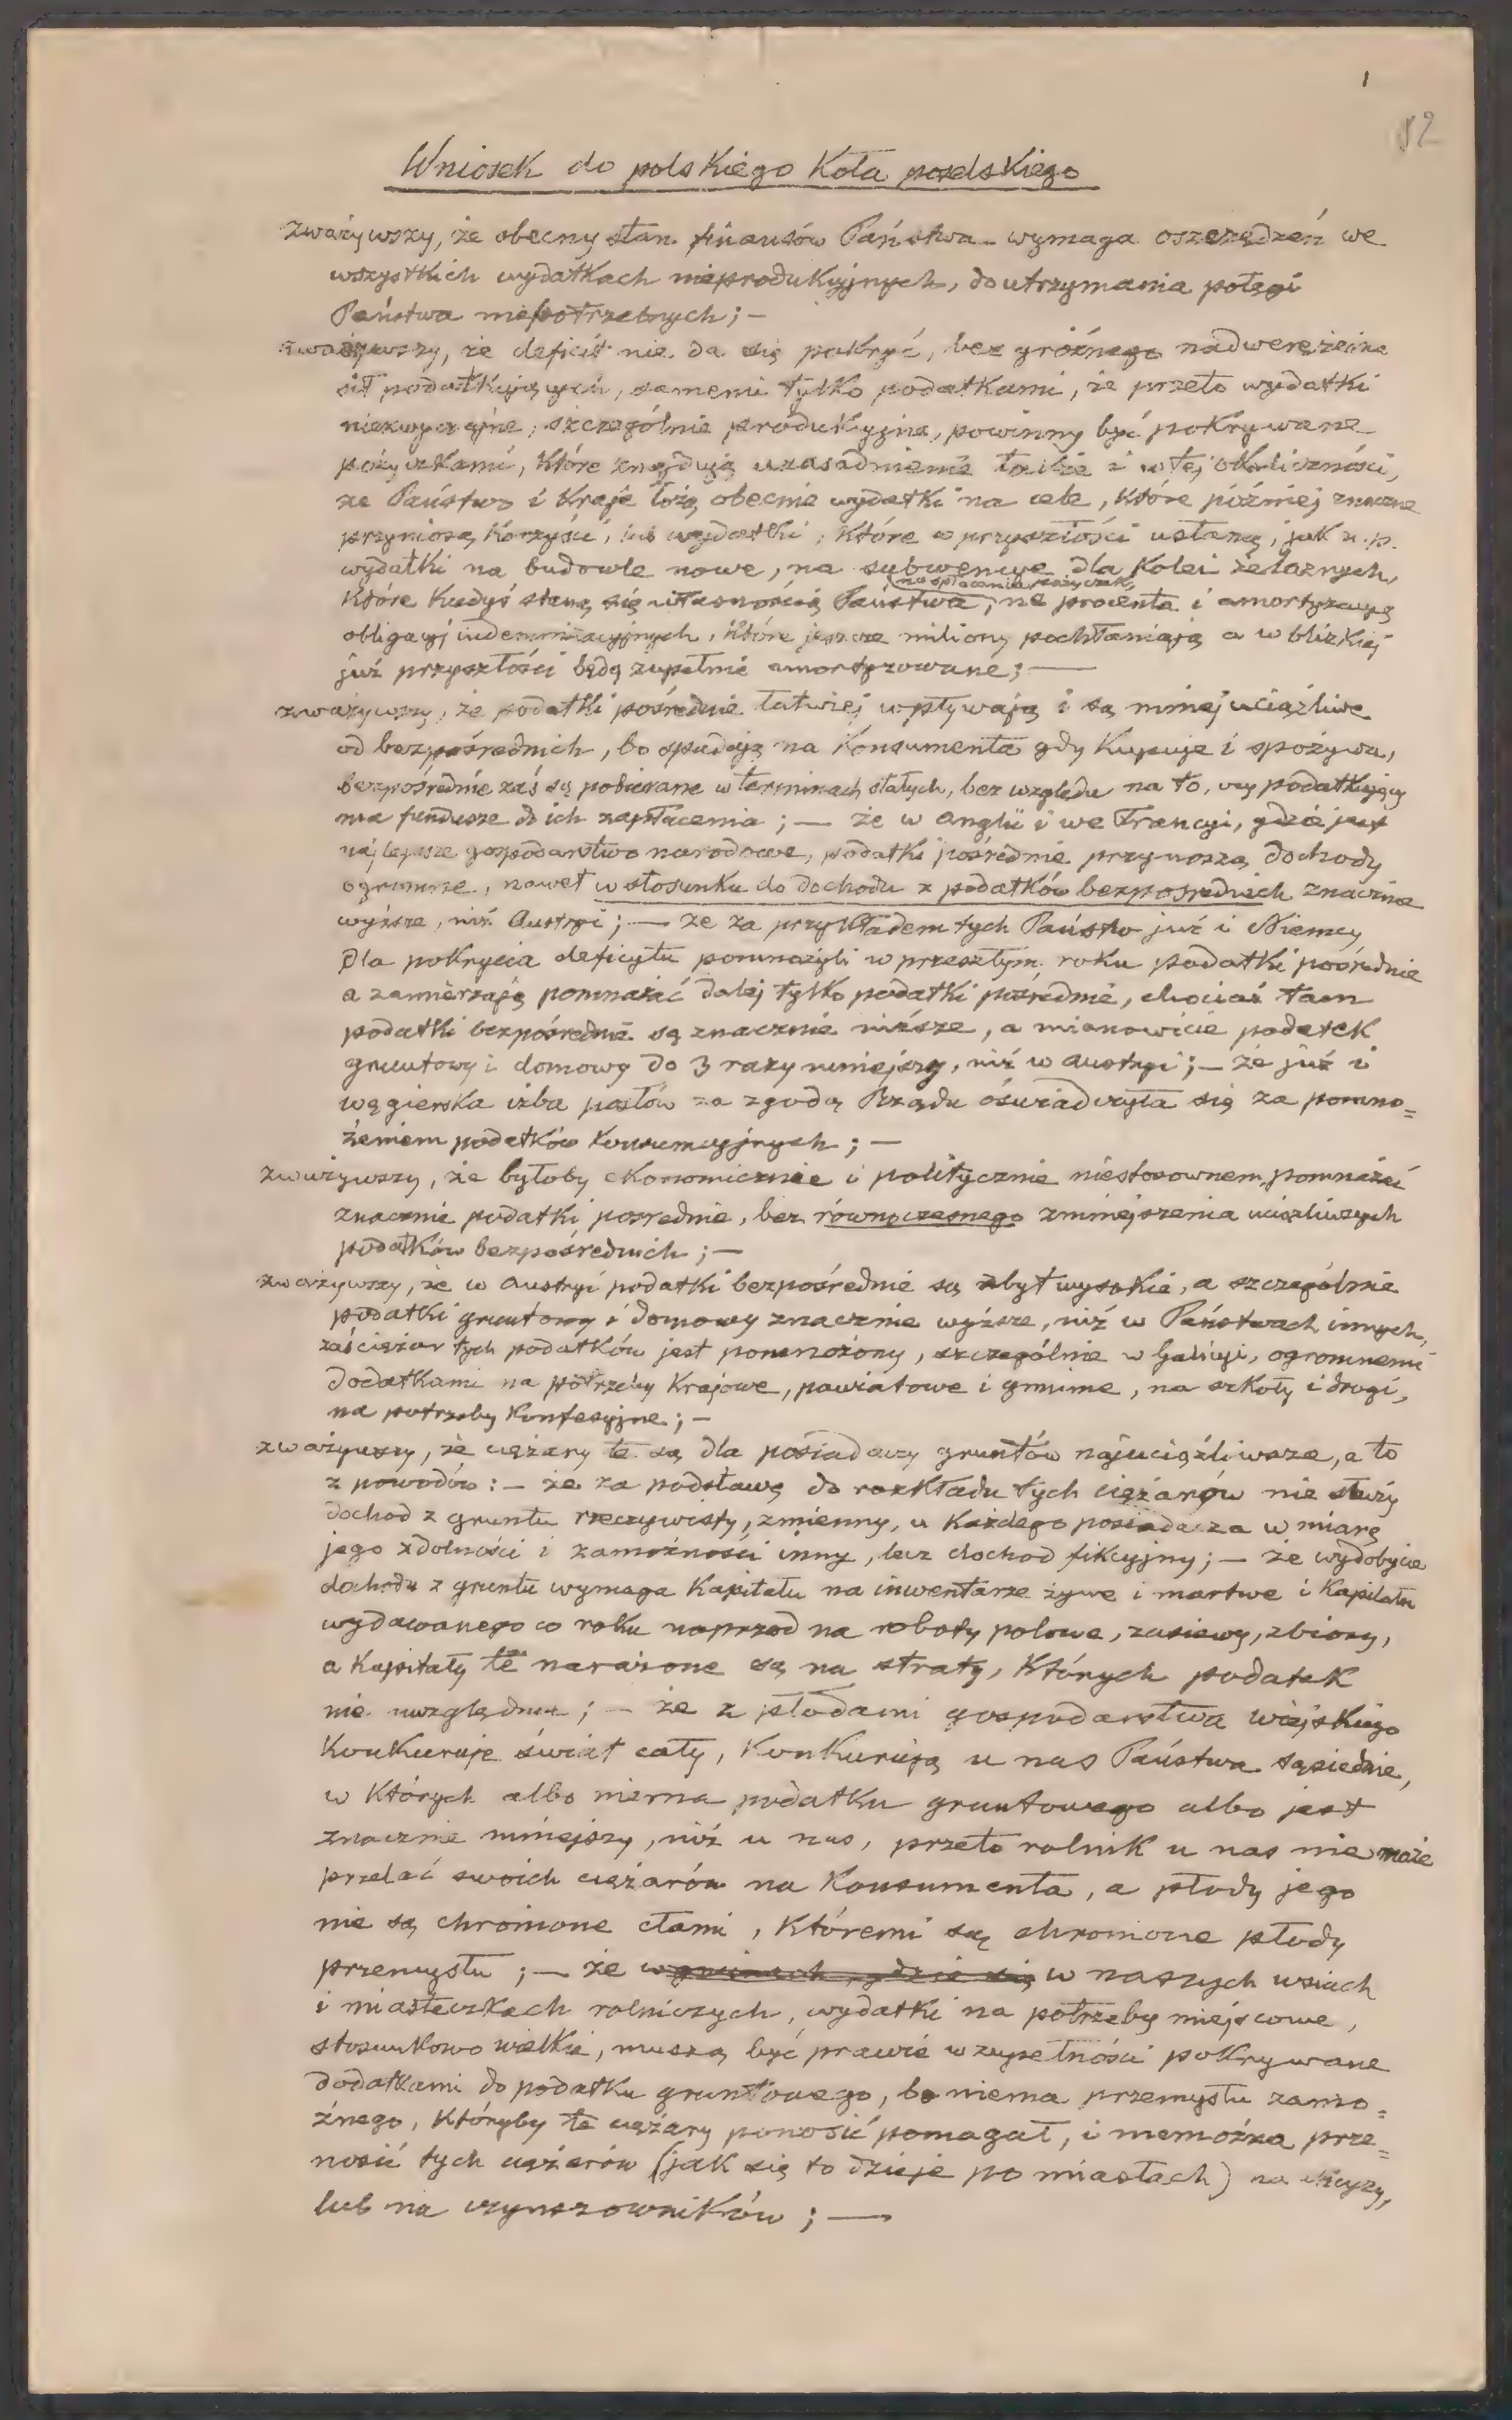 1
82
Wniosek do polskiego Koła poselskiego
zważywszy, że obecny stan finansów Państwa wymaga oszczędzeń we
wszystkich wydatkach nieprodukcyjnych, do utrzymania potęgi
Państwa niepotrzebnych; —
zważywszy, że deficit nie da się pokryć, bez groźnego nadwerężenia
sił podatkujących, samemi tylko podatkami, że przeto wydatki
niezwyczajne, szczególnie produkcyjne, powinny być pokrywane
pożyczkami, które znajdują uzasadnienie także i w tej okoliczności,
że Państwo i Kraje łożą obecnie wydatki na cele, które później znaczne
przyniosą Korzyści, lub wydatki, które w przyszłości ustaną, jak n. p.
wydatki na budowle nowe, na subwencye dla Kolei żelaznych,
na spłacenie pożyczek,
które kiedyś staną się własnością Państwa, na procenta i amortyzacyą
obligacyj indemnizacyjnych, które jeszcze miliony pochłaniają a w blizkiej
już przyszłości będą zupełnie amortyzowane; —
zważywszy, że podatki pośrednie łatwiej wpływają i są mniej uciążliwe
od bezpośrednich, bo spadają na Konsumenta gdy Kupuje i spożywa,
bezpośrednie zaś są pobierane w terminach stałych, bez względu na to, czy podatkujący
ma fundusze do ich zapłacenia; — że w Anglii i we Francyi, gdzie jest
najlepsze gospodarstwo narodowe, podatki pośrednie przynoszą dochody
ogromne, nawet w stosunku do dochodu z podatków bezpośrednich znacznie
wyższe, niż Austryi; — że za przykładem tych Państw już i Niemcy
dla pokrycia deficytu pomnożyli w przeszłym roku podatki pośrednie
a zamierzają pomnażać dalej tylko podatki pośrednie, chociaż tam
podatki bezpośrednie są znacznie niższe, a mianowicie podatek
gruntowy i domowy do 3 razy mniejszy, niż w Austryi; — że już i
węgierska izba posłów za zgodą Rządu oświadczyła się za pomno=
żeniem podatków konsumcyjnych; —
zważywszy, że byłoby ekonomicznie i politycznie niestosownem, pomnażać
znacznie podatki pośrednie, bez równoczesnego zmniejszenia uciążliwszych
podatków bezpośrednich; —
zważywszy, że w Austryi podatki bezpośrednie są zbyt wysokie, a szczególnie
podatki gruntowy i domowy znacznie wyższe, niż w Państwach innych,
zaś ciężar tych podatków jest pomnożony, szczególnie w Galicyi, ogromnemi
dodatkami na potrzeby Krajowe, powiatowe i gminne, na szkoły i drogi,
na potrzeby Konfesyjne; —
zważywszy, że ciężary te są dla posiadaczy gruntów najuciążliwsze, a to
z powodów: — że za podstawę do rozkładu tych ciężarów nie służy
dochod z gruntu rzeczywisty, zmienny, u każdego posiadacza w miarę
jego zdolności i zamożności inny, lecz dochod fikcyjny; — że wydobycie
dochodu z gruntu wymaga Kapitału na inwentarze żywe i martwe i Kapitału
wydawanego co roku naprzod na roboty polowe, zasiewy, zbiory,
a Kapitały te narażone są na straty, których podatek
nie uwzględnia; — że z płodami gospodarstwa wiejskiego
Konkuruje świat cały, Konkurują u nas Państwa sąsiednie,
w których albo niema podatku gruntowego albo jest
znacznie mniejszy, niż u nas, przeto rolnik u nas nie może
przelać swoich ciężarów na Konsumenta, a płody jego
nie są chronione cłami, któremi są chronione płody
przemysłu; — że w gminach, gdzie się w naszych wsiach
i miasteczkach rolniczych, wydatki na potrzeby miejscowe,
stosunkowo wielkie, muszą być prawie w zupełności pokrywane
dodatkami do podatku gruntowego, bo niema przemysłu zamo=
żnego, któryby te ciężary ponosić pomagał, i niemożna prze=
nosić tych ciężarów (jak się to dzieje po miastach) na
lub na czynszowników; —